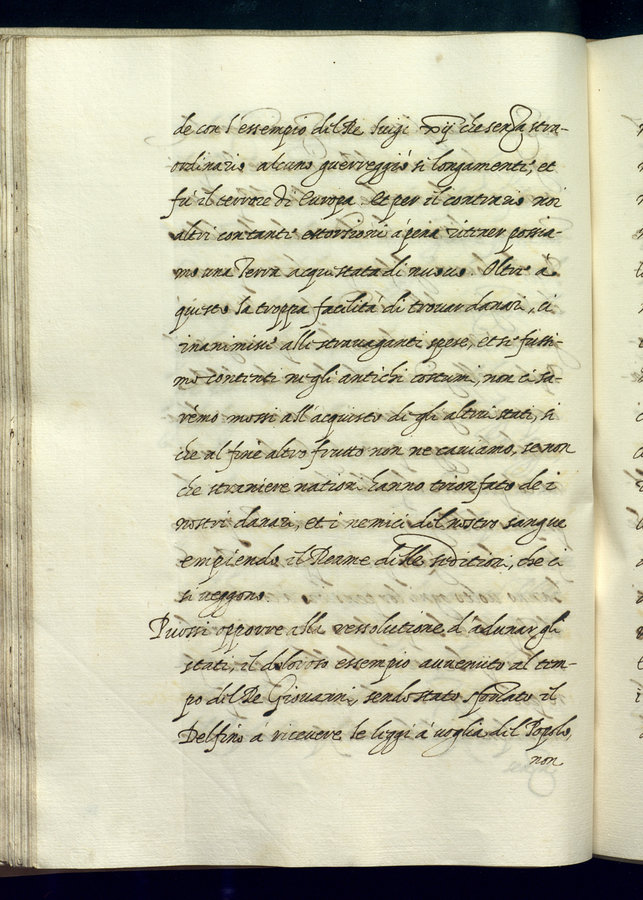 de con l'essempio del Re luigi xij che senza stra-
ordinario alcuno guerreggiò si longamente, et
fù il terrore di Europa. et per il contrario noi
altri con tante estorsioni à pena ritener possia-
mo una Terra acquistata di nuovo. Oltre à
questo la troppa facilità di trovar danari, ci
inanimisce alle stravaganti spese, et se fussi-
mo contenti ne gli antichi costumi, non ci sa-
rémo mossi all'acquisto de gli altrui stati, si
che al fine altro frutto non ne caviamo, se non
che straniere nationi hanno trionfato de i
nostri danari, et i nemici del nostro sangue
empiendo il Reame delle seditioni, che ci
si veggono
Puossi opporre alla ressolutione d'adunar gli
stati, il doloroso essempio auuenuto al tem-
po del Re Giovanni, sendo stato sforzato il
Delfino à ricevere le leggi à voglia del Popolo,
non